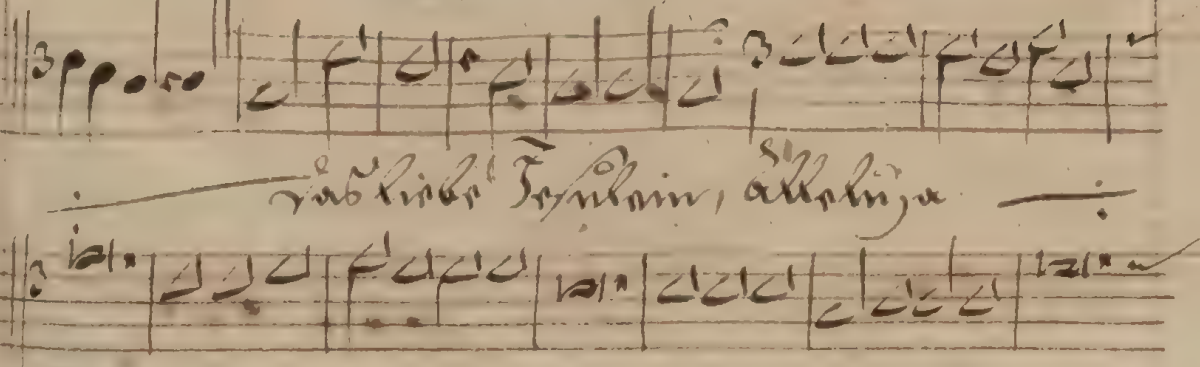 das liebe Jesulein, alleluja